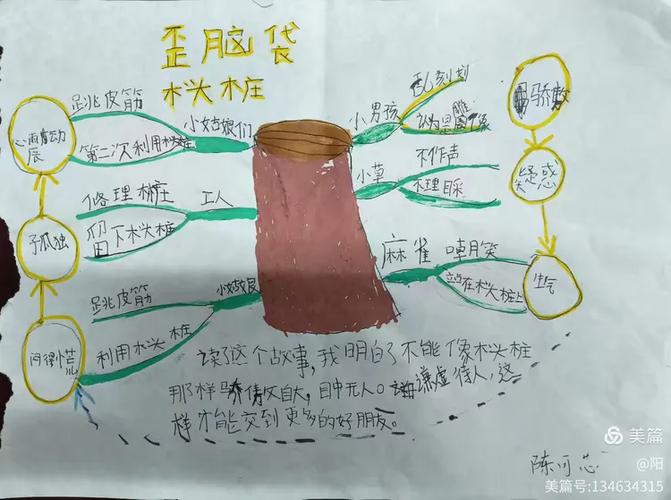 歪脑袋
木头桩
跳皮筋
第二次利用木头桩
小姑娘们
小男孩
乱刻划
骄傲
修理树庄
留下木头桩
工人
小草
不作声
不理睬
疑惑
孤独
麻雀
嘲笑
站在木头桩上
生气
跳皮筋
利用木头桩
小姑娘
读了这个故事，我明白了不能像木头桩
那样骄傲自大，目中无人。谦虚待人，这
样才能交到更多的好朋友。
陈可芯
美篇
@阳
美篇号:134634315